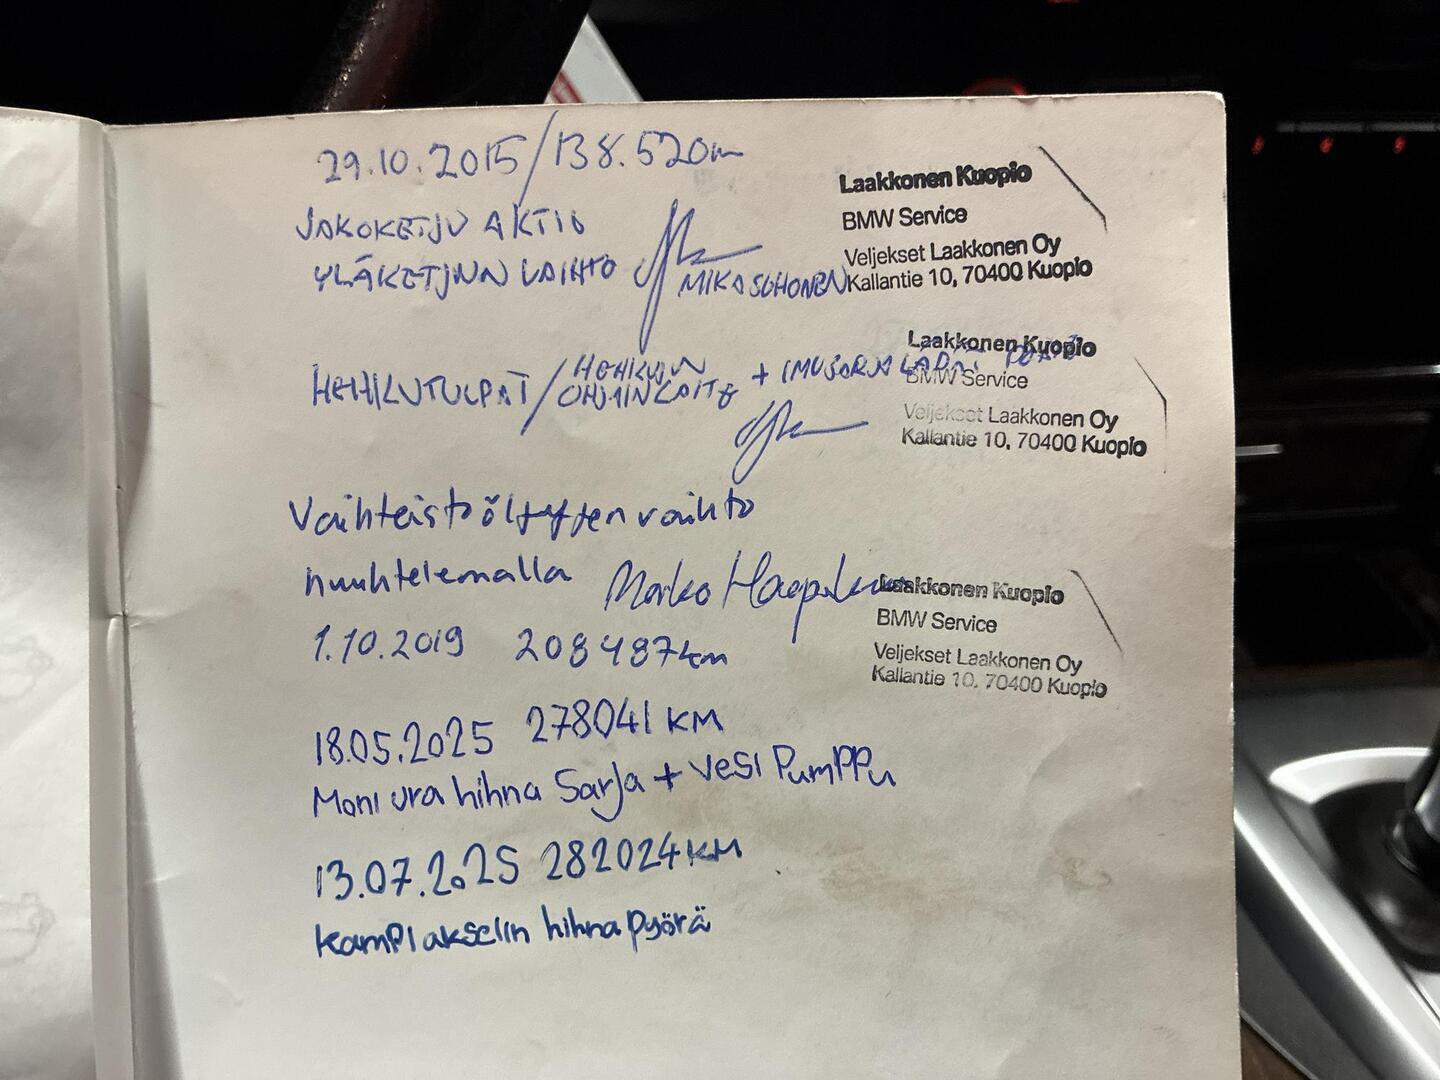 29.10.2015/138.520km
JAKOKETJU AKTIO
YLÄKETJUN VAIHTO
MIKA SOHONEN
Laakkonen Kuopio
BMW Service
Veljekset Laakkonen Oy
Kallantie 10, 70400 Kuopio
HEHKUTULPAT/HEHKUN OHJAINLAITE + IMUSARJA LÄPÄT
Laakkonen Kuopio
BMW Service
Veljekset Laakkonen Oy
Kallantie 10, 70400 Kuopio
Vaihteistoöljyjen vaihto
huuhtelemalla Marko
Laakkonen Kuopio
BMW Service
Veljekset Laakkonen Oy
Kallantie 10, 70400 Kuopio
1.10.2019 208487km
18.05.2025 278041 KM
Moniura hihna Sarja + vesi PumPPu
13.07.2025 282024 KM
kampiakselin hihnapyörä